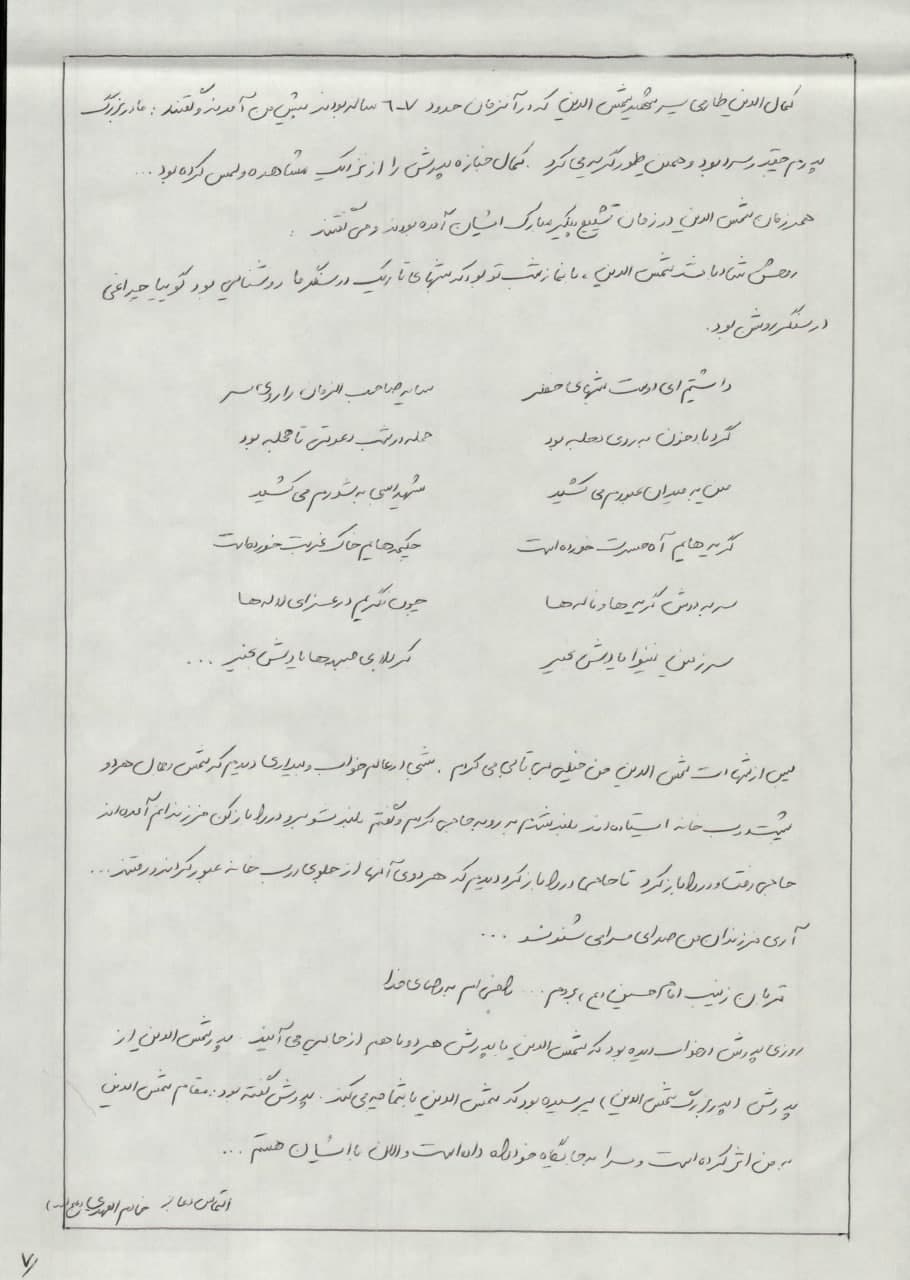 کمال الدین طارمی پسر شهید شمس الدین که در آنزمان حدود ۷-۶ ساله بودند پیش من آمدند و گفتند : مادربزرگ
پدرم چقدر سرد بود و همین طور گریه می کرد . کمال جنازه پدرش را از نزدیک مشاهده و لمس کرده بود ...
همرزمان شمس الدین در زمان تشییع پیکر مبارک ایشان آمده بودند و می گفتند :
روحش شاد باشد شمس الدین ، با نماز شب تو بود که شبهای تاریک در سنگر ما روشنایی بود گویا چراغی
در سنگر روشن بود .
داشتم ای دوست شبهای خطر
سایه صاحب الزمان را روی سر
گرد باد خون به روی دجله بود
حمله در شب دعوتی تا حجله بود
مین به میدان عبورم می کشید
شهد به شورم می کشید
گریه هایم آه حسرت خورده است
چکمه هایم خاک غربت خورده است
سر به دوش گریه ها و ناله ها
چون نگریم در عزای لاله ها
سرزمین نینوا یادش بخیر
کربلای جبهه ها یادش بخیر ...
پس از شهادت شمس الدین من خیلی بی تابی می کردم . شبی در عالم خواب و بیداری دیدم که شمس و کمال هر دو
پشت درب خانه ایستاده اند بلند شدم رو به حاجی کردم و گفتم بلند شو برو در را باز کن فرزندانم آمده اند
حاجی رفت و در را باز کرد تا حاجی در را باز کرد دیدم که هر دوی آنها از جلوی درب خانه عبور کردند و رفتند ...
آری فرزندان من صدای مرا می شنوند ...
قربان زینب امام حسین (ع) بروم ... راضی ام به رضای خدا
روزی پدرش در خواب دیده بود که شمس الدین با پدرش هر دو با هم از جایی می آیند . پدر شمس الدین از
پدرش (پدربزرگ شمس الدین) پرسیده بود که شمس الدین با شما چه می کند . پدرش گفته بود : مقام شمس الدین
به من اثر کرده است و مرا به جایگاه خود راه داده است و الان با ایشان هستم ...
التماس دعا خادم المهدی
۷/